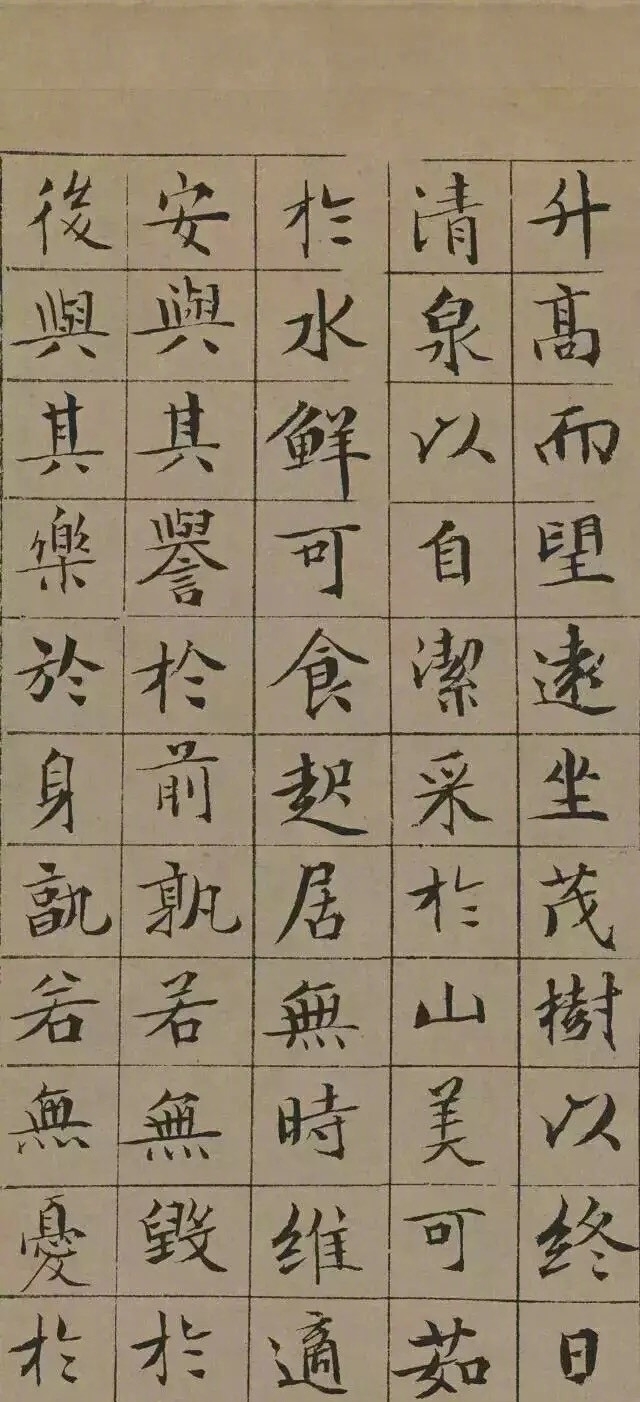 升高而望遠坐茂樹以終日
清泉以自潔采於山美可茹
於水鮮可食起居無時維適
安與其譽於前孰若無毀於
後與其樂於身孰若無憂於